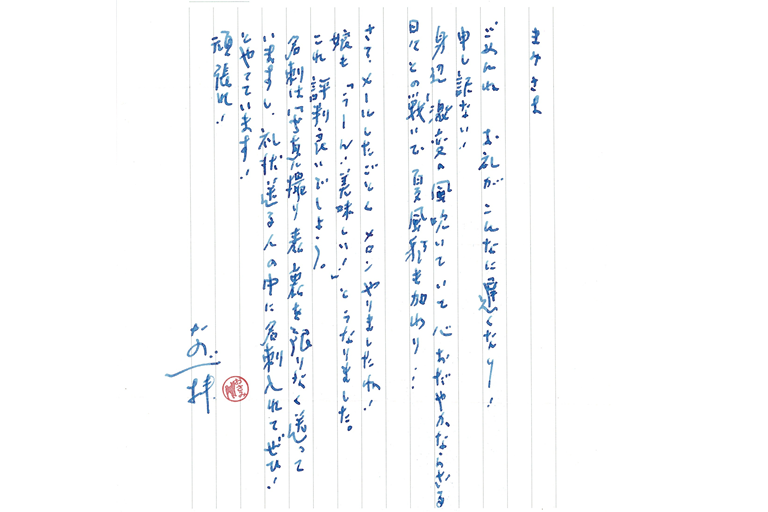 まみさま
ごめんね お礼がこんなに遅くなり!
申し訳ない!
身辺、激変の風吹いていて心おだやかならざる
日々との戦いで、夏風邪も加わり…
さて、メールしたごとくメロンやりましたね!
娘も「うーん!美味しい!」とうなりました。
これ評判良いでしょう。
名刺は写真撮り表裏を限りなく送って
いますし、礼状送る人の中に名刺入れてぜひ!
とやっています!
頑張れ!
なお 拝